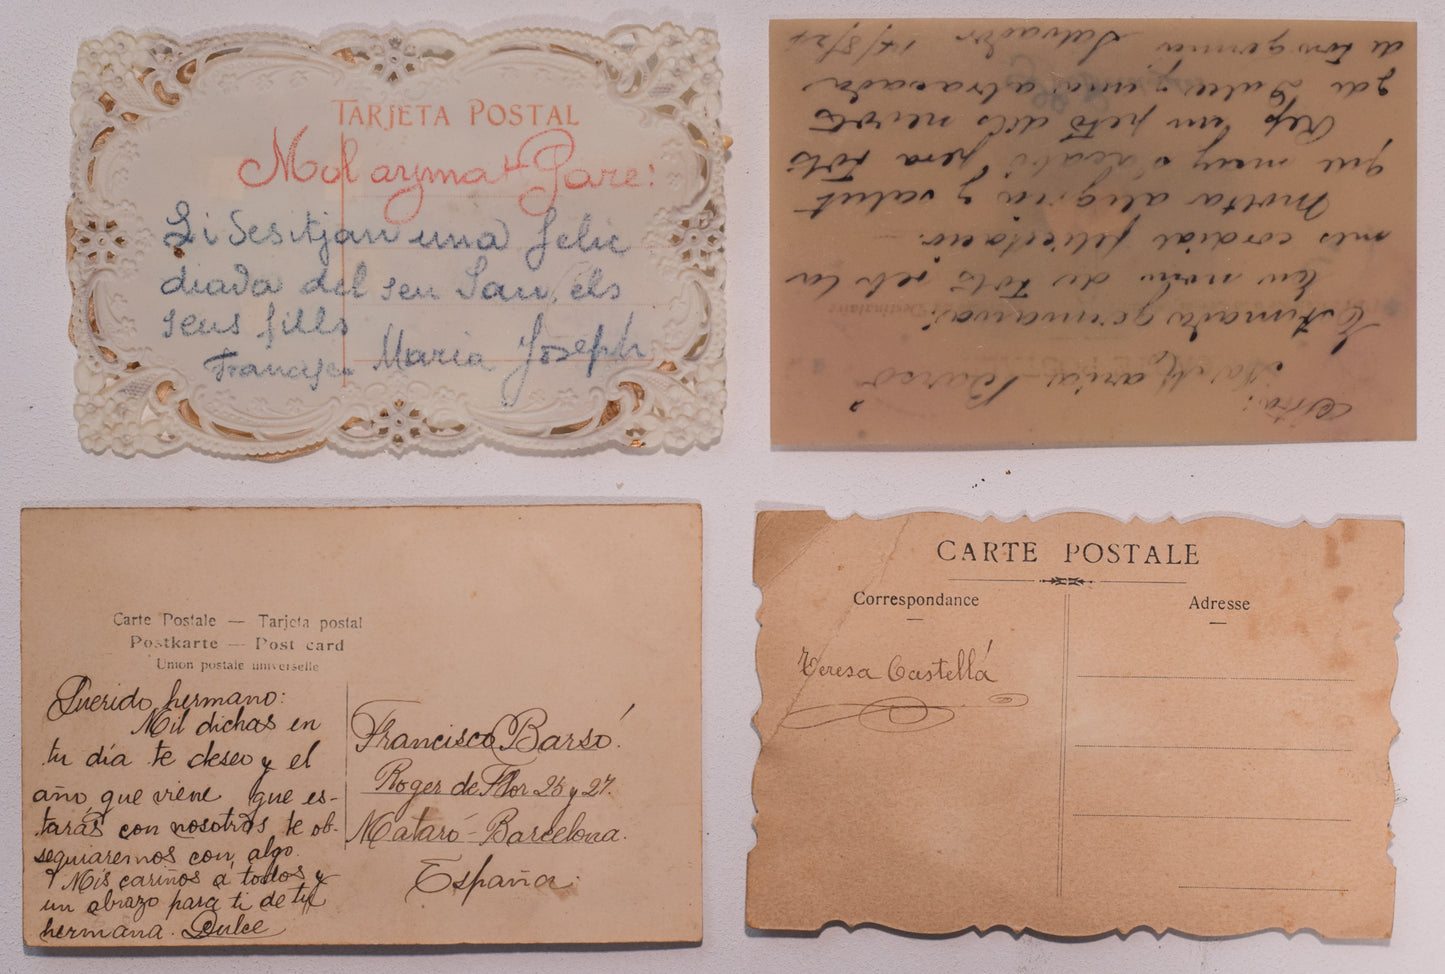 TARJETA POSTAL
Mol aymat Pare:
Li desitjan una felic
diada del seu San, els
seus fills
Francisco Maria Joseph
Srta:
Maria Barsó
Estimada germana:
En nom de tots reb la
mes cordial felicitació.
Molta alegria y salut
que may s'acabi pera tots
Rep un petó dels nevots
de Dulce y una abrasada
de ton germá Salvador 14/8/21
Destinataire
Carte Postale — Tarjeta postal
Postkarte — Post card
Union postale universelle
Querido hermano:
Mil dichas en
tu día te deseo y el
año que viene que es-
tarás con nosotros te ob-
sequiaremos con algo.
Mis cariños á todos y
un abrazo para ti de tu
hermana. Dulce
Francisco Barsó.
Roger de Flor 25 y 27.
Mataró - Barcelona.
España.
CARTE POSTALE
Correspondance
Adresse
Teresa Castellá